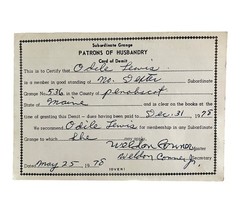 Subordinate Grange
PATRONS OF HUSBANDRY
Card of Demit
This is to Certify that Odile Lewis
is a member in good standing of Mo. Dexter Subordinate
Grange No. 536 in the County of Penobscot
State of Maine and is clear on the books at the
time of granting this Demit — dues having been paid to Dec. 31 1978
We recommend Odile Lewis for membership in any Subordinate
Grange to which She may apply.
Weldon Connor Master
Weldon Connor, Jr.
Dated May 25 1978
(OVER)